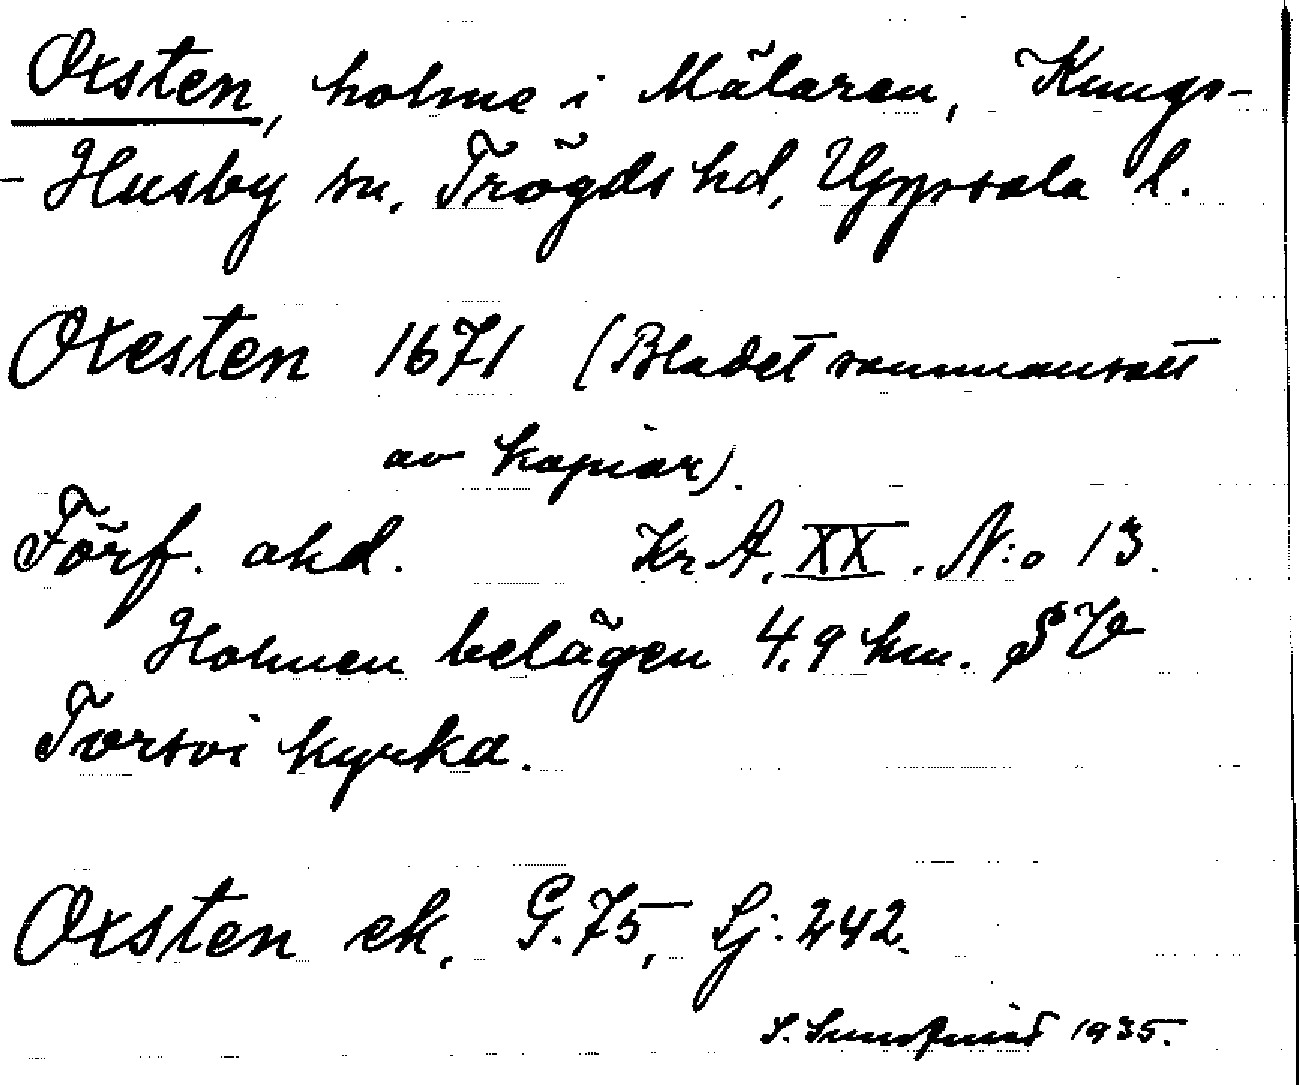 Oxsten, holme i Mälaren, Kungs-
-Husby sn, Trögds hd, Uppsala l.
Oxesten 1671 (Bladet sammansatt
av kopior).
Förf. okd. Kr. A. XX. N:o 13.
Holmen belägen 4.9 km. SV
Torsvi kyrka.
Oxsten ek. G. 75, Lj: 242.
S. Sundquist 1935.